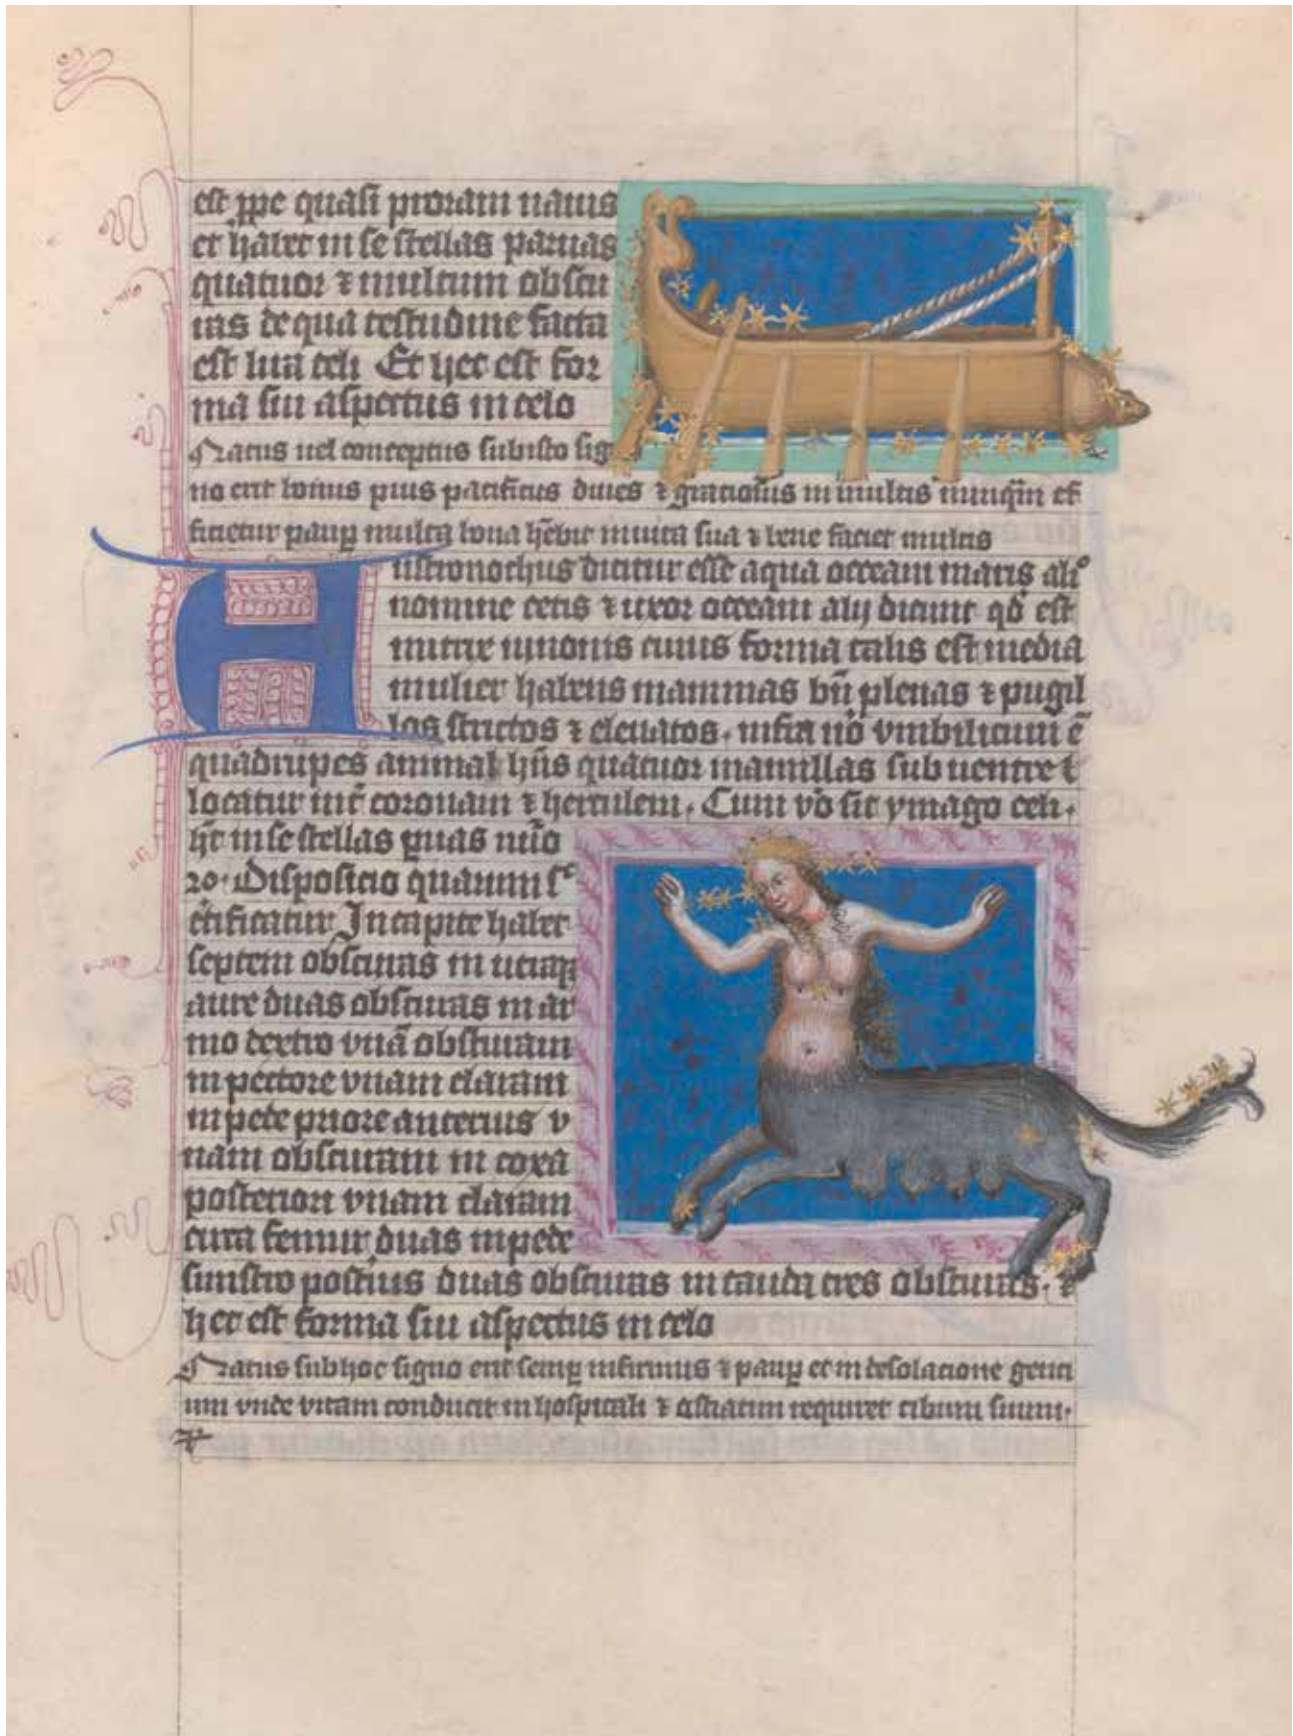 est ꝓpe quasi proram nauis
et habet in se stellas paruas
quatuor ⁊ multum obscu
ras de qua testudine facta
est lira celi Et hec est for
ma siu aspectus in celo
Natus uel conceptus sub isto sig
no erit bonus pius pacificus diues ⁊ graciosus in multis nunq̄m ef
ficietur paup̲ multa bona h̄ebit in uita sua ⁊ bene faciet multis
Austronochus dicitur esse aqua occeani maris ali⁰
nomine cetis ⁊ uxor occeani alij dicunt qd̄ est
nutrix iunonis cuius forma talis est media
mulier habens mammas bn̄ plenas ⁊ pugil
los strictos ⁊ eleuatos. infra u̇o vmbilicum ē
quadrupes animal hn̄s quatuor mamillas sub uentre ⁊
locatur int̄ coronam ⁊ herculem. Cum v̇o sit ymago celi.
ht̄ in se stellas suas nūo
20. Disposicio quarum sc̄
c̄tificatur In capite habet
septem obscuras in utraq̲
aure duas obscuras in ar
mo dextro vnā obscuram
in pectore vnam claram
in pede priore anterius v
nam obscuram in coxa
posteriori vnam claram
circa femur duas in pede
sinistro post̄ius duas obscuras in cauda tres obscuras. ⁊
hec est forma siu aspectus in celo
Natus sub hoc signo erit semp̲ infirmus ⁊ paup̲ et in desolacione genci
um vnde vitam conducit in hospitali ⁊ ostiatim requiret cibum suum.